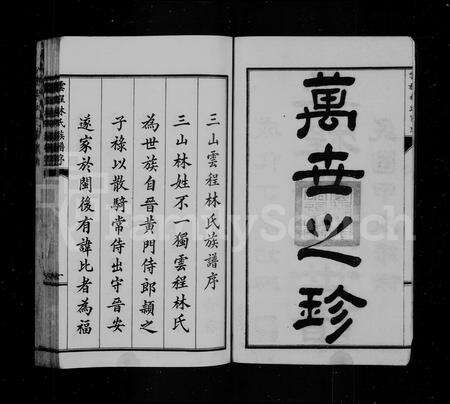 萬世之珍
三山雲程林氏族譜序
三山林姓不一獨雲程林氏
為世族自晉黃門侍郎潁之
子祿以散騎常侍出守晉安
遂家於閩後有諱比者為福
雲程林氏族譜序
FamilySearch